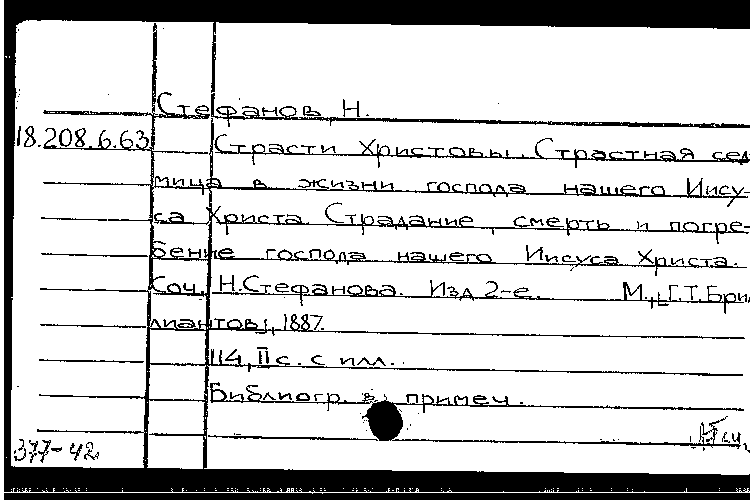 Стефанов, Н.
18.208.6.63 Страсти Христовы. Страстная сед
мица в жизни господа нашего Иису-
са Христа Страдание, смерть и погре-
бение господа нашего Иисуса Христа.
Соч. Н.Стефанова. Изд 2-е. М., Г.Т.Бри
лиантов, 1887.
114, II с. с илл.
Библиогр. в примеч.
377-42